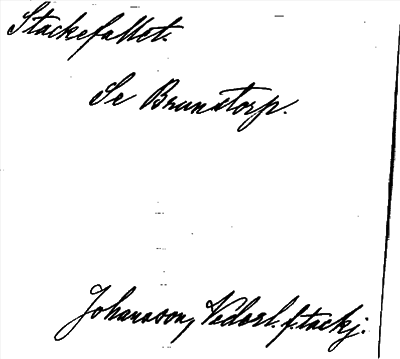 Stackefallet.
Se Brunstorp.
Johansson, Vedorl. f. tackj.